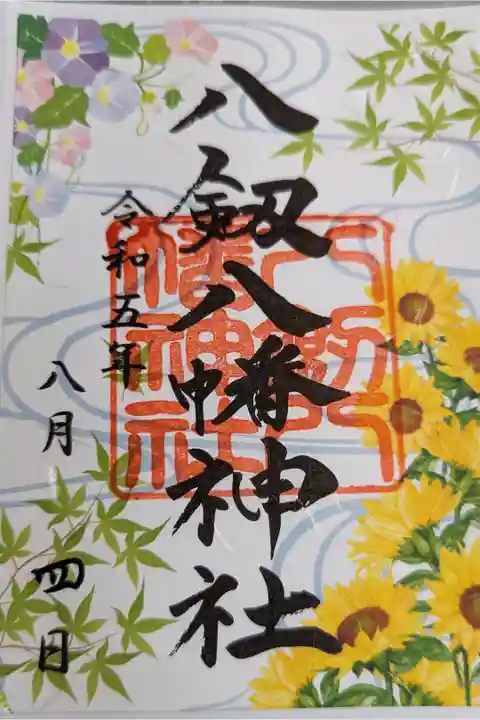 八剱八幡神社
令和五年
八月四日
八剱八
幡神社